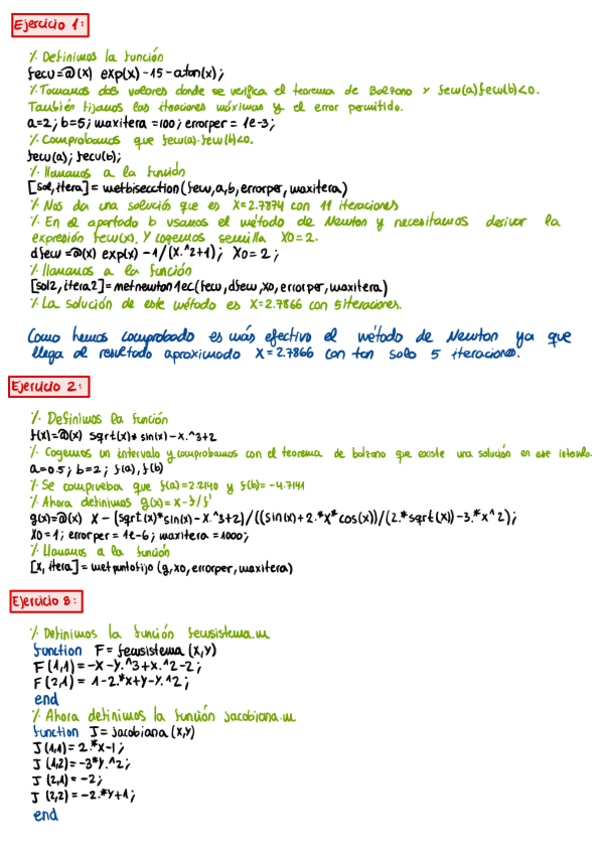 Ejercicio 1:
% Definimos la función
fecu=@(x) exp(x)-15-atan(x);
% Tomamos dos valores donde se verifica el teorema de Bolzano y fecu(a)fecu(b)<0.
También fijamos las iteraciones máximas y el error permitido.
a=2; b=5; maxitera=100; errorper= 1e-3;
% Comprobamos que fecu(a)·fecu(b)<0.
fecu(a); fecu(b);
% llamamos a la función
[sol,itera]= metbiseccion(fecu,a,b,errorper,maxitera)
% Nos da una solución que es X=2.7874 con 11 iteraciones
% En el apartado b usamos el método de Newton y necesitamos derivar la
expresión fecu(x). Y cogemos semilla X0=2.
dfecu=@(x) exp(x)-1/(x.^2+1); X0=2;
% llamamos a la función
[sol2,itera2]=metnewton1ec(fecu,dfecu,x0,errorper,maxitera)
% La solución de este método es X=2.7866 con 5 iteraciones.
Como hemos comprobado es más efectivo el método de Newton ya que
llega al resultado aproximado X=2.7866 con tan solo 5 iteraciones.
Ejercicio 2:
% Definimos la función
f(x)=@(x) sqrt(x)*sin(x)-x.^3+2
% Cogemos un intervalo y comprobamos con el teorema de bolzano que existe una solución en ese intervalo.
a=0.5; b=2; f(a), f(b)
% Se comprueba que f(a)=2.2140 y f(b)=-4.7141
% Ahora definimos g(x)=x-f/f'
g(x)=@(x) x-(sqrt(x)*sin(x)-x.^3+2)/((sin(x)+2.*x*cos(x))/(2.*sqrt(x))-3.*x^2);
X0=1; errorper=1e-6; maxitera=1000;
% Llamamos a la función
[x, itera]=metpuntofijo(g,x0,errorper,maxitera)
Ejercicio 8:
% Definimos la función fecusistema.m
function F=fecusistema(x,y)
F(1,1)=-x-y.^3+x.^2-2;
F(2,1)= 1-2.*x+y-y.^2;
end
% Ahora definimos la función jacobiana.m
function J=jacobiana(x,y)
J(1,1)=2.*x-1;
J(1,2)=-3*y.^2;
J(2,1)=-2;
J(2,2)=-2.*y+1;
end